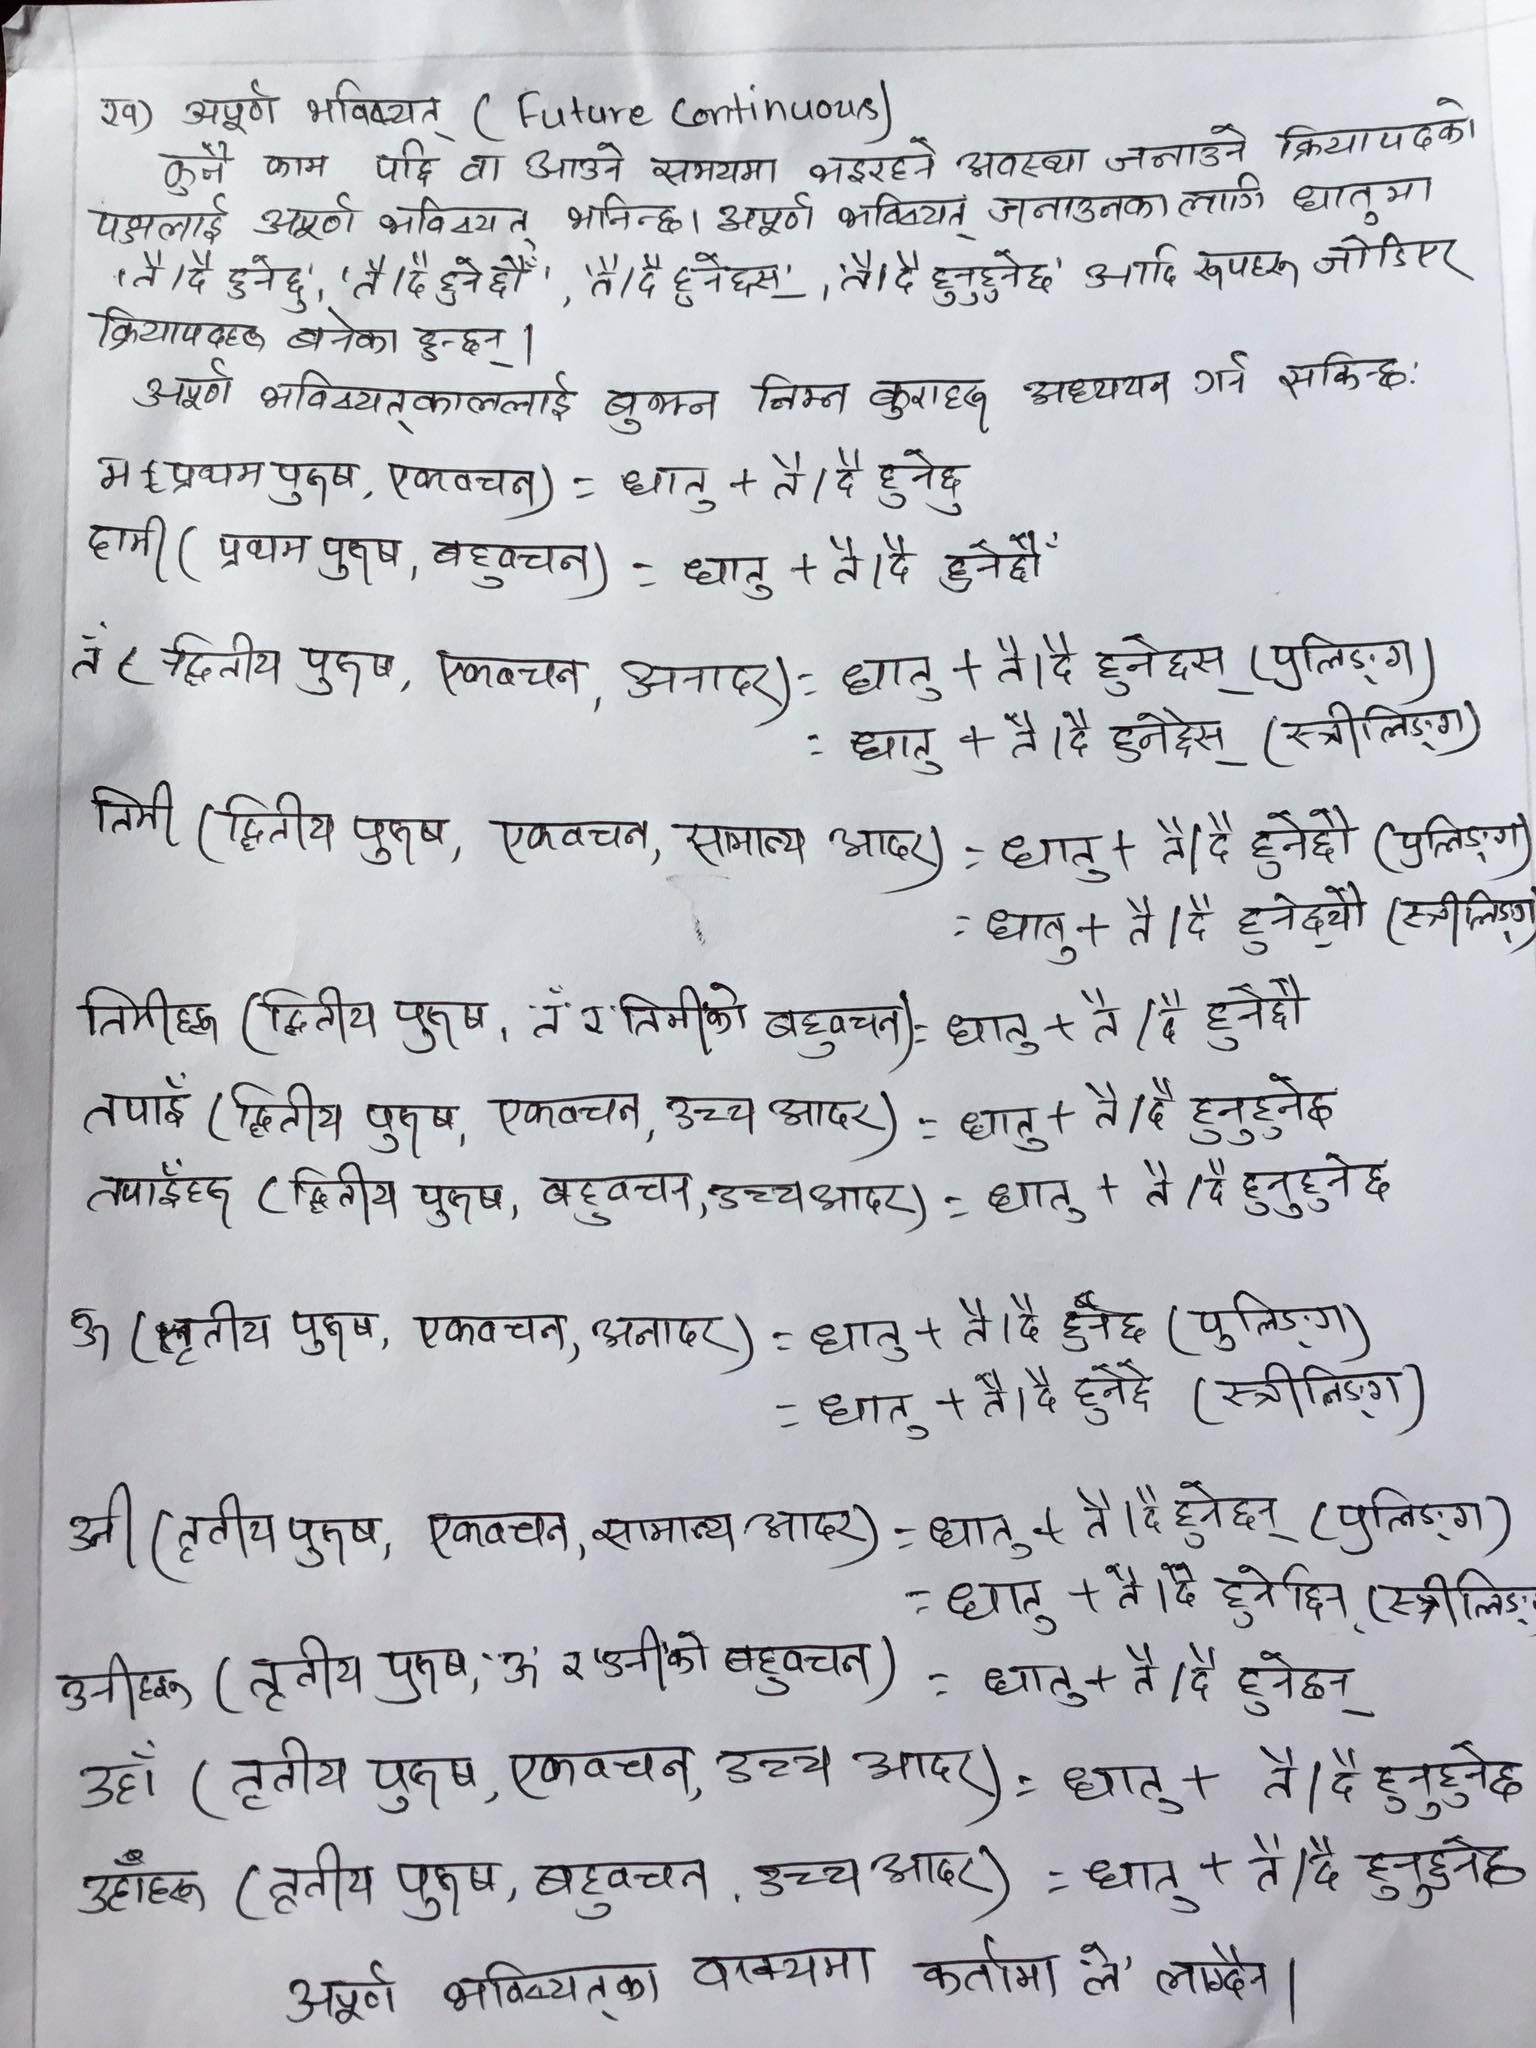 ख) अपूर्ण भविष्यत् (Future Continuous)
कुनै काम पछि वा आउने समयमा भइरहने अवस्था जनाउने क्रियापदको
पक्षलाई अपूर्ण भविष्यत् भनिन्छ। अपूर्ण भविष्यत् जनाउनका लागि धातुमा
'तै/दै हुनेछु', 'तै/दै हुनेछौँ', 'तै/दै हुनेछस्', 'तै/दै हुनुहुनेछ' आदि रूपहरू जोडिएर
क्रियापदहरू बनेका हुन्छन्।
अपूर्ण भविष्यत्काललाई बुझ्न निम्न कुराहरू अध्ययन गर्न सकिन्छ:
म (प्रथम पुरुष, एकवचन) = धातु + तै/दै हुनेछु
हामी (प्रथम पुरुष, बहुवचन) = धातु + तै/दै हुनेछौँ
तँ (द्वितीय पुरुष, एकवचन, अनादर) = धातु + तै/दै हुनेछस् (पुलिङ्ग)
= धातु + तै/दै हुनेछेस् (स्त्रीलिङ्ग)
तिमी (द्वितीय पुरुष, एकवचन, सामान्य आदर) = धातु + तै/दै हुनेछौ (पुलिङ्ग)
= धातु + तै/दै हुनेछ्यौ (स्त्रीलिङ्ग)
तिमीहरू (द्वितीय पुरुष, 'तँ' र 'तिमी'को बहुवचन) = धातु + तै/दै हुनेछौ
तपाईँ (द्वितीय पुरुष, एकवचन, उच्च आदर) = धातु + तै/दै हुनुहुनेछ
तपाईँहरू (द्वितीय पुरुष, बहुवचन, उच्च आदर) = धातु + तै/दै हुनुहुनेछ
ऊ (तृतीय पुरुष, एकवचन, अनादर) = धातु + तै/दै हुनेछ (पुलिङ्ग)
= धातु + तै/दै हुनेछे (स्त्रीलिङ्ग)
उनी (तृतीय पुरुष, एकवचन, सामान्य आदर) = धातु + तै/दै हुनेछन् (पुलिङ्ग)
= धातु + तै/दै हुनेछिन् (स्त्रीलिङ्ग
उनीहरू (तृतीय पुरुष, 'ऊ' र 'उनी'को बहुवचन) = धातु + तै/दै हुनेछन्
उहाँ (तृतीय पुरुष, एकवचन, उच्च आदर) = धातु + तै/दै हुनुहुनेछ
उहाँहरू (तृतीय पुरुष, बहुवचन, उच्च आदर) = धातु + तै/दै हुनुहुनेछ
अपूर्ण भविष्यत्का वाक्यमा कर्तामा 'ले' लाग्दैन।